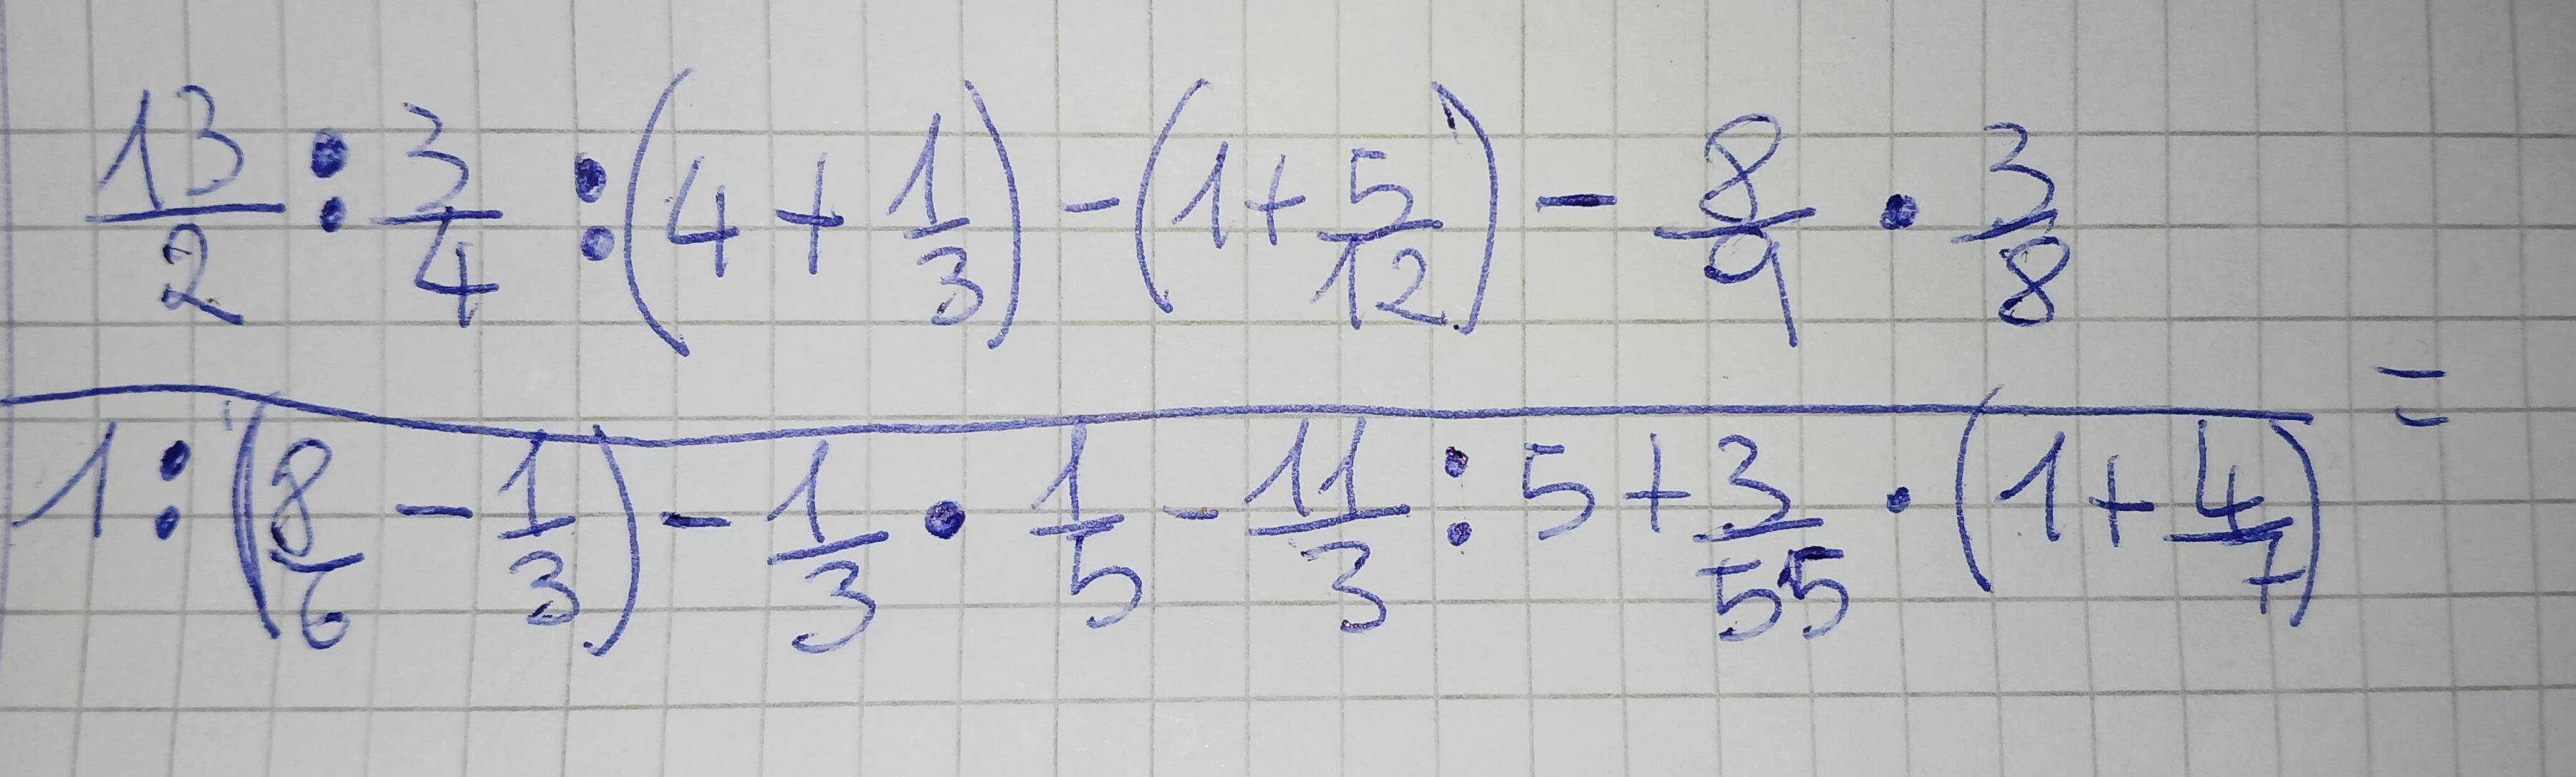 13/2 : 3/4 : (4 + 1/3) - (1 + 5/12) - 8/9 · 3/8 =
1 : (8/6 - 1/3) - 1/3 · 1/5 - 11/3 : 5 + 3/55 · (1 + 4/7)